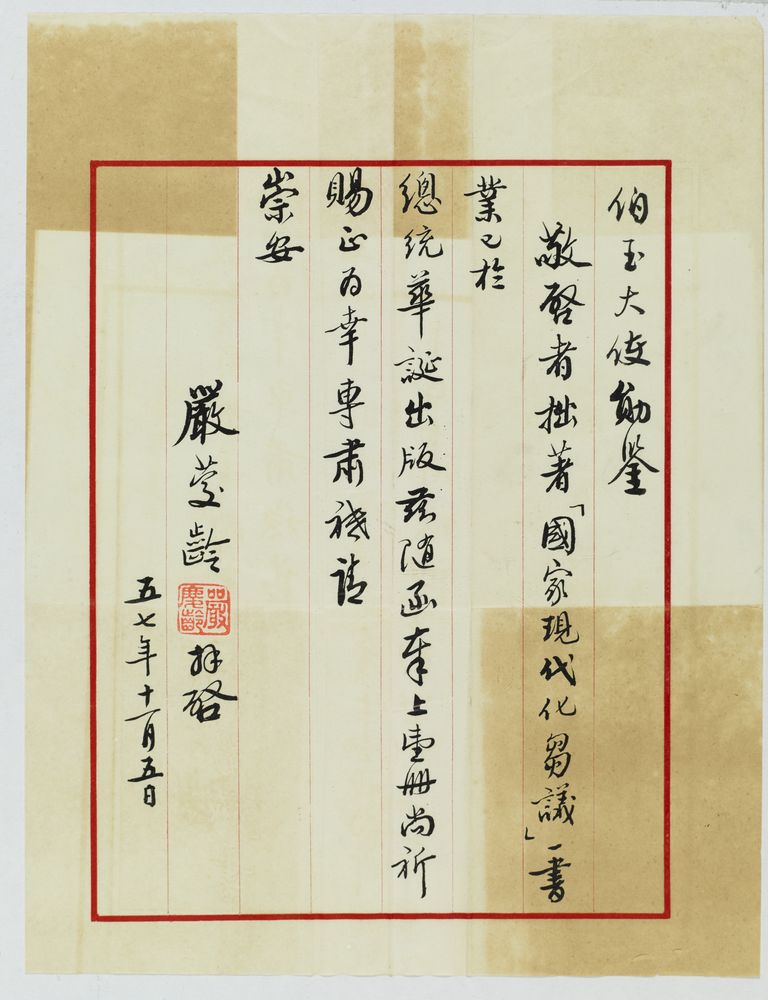 伯玉大使勛鑒
敬啓者拙著「國家現代化芻議」一書
業已於
總統華誕出版茲隨函奉上壹册尚祈
賜正為幸專肅祗請
崇安
嚴慶齡
嚴慶齡
拜啓
五七年十一月五日